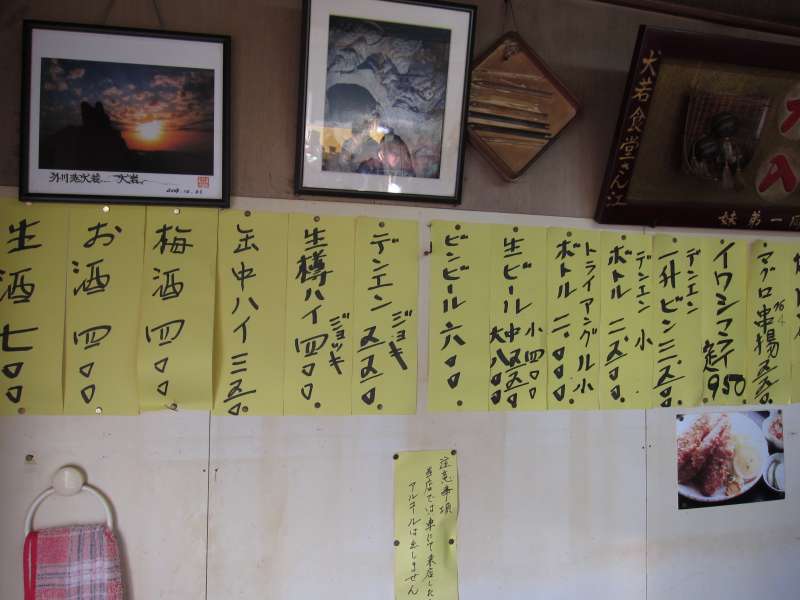 犬岩
犬岩食堂さん江
生酒 七〇〇
お酒 四〇〇
梅酒 四〇〇
缶中ハイ 三五〇
生樽ハイ ジョッキ 四〇〇
デンエン ジョキ 五五〇
ビンビール 六〇〇
生ビール 小四〇〇 中五五〇 大八〇〇
トライアングル小
ボトル 二〇〇〇
デンエン 小
ボトル 二五〇〇
デンエン
一升ビン 三五〇〇
イワシフライ定 950
マグロ串揚 五五〇
注意事項
当店では車にて来店した
アルコールは出しません